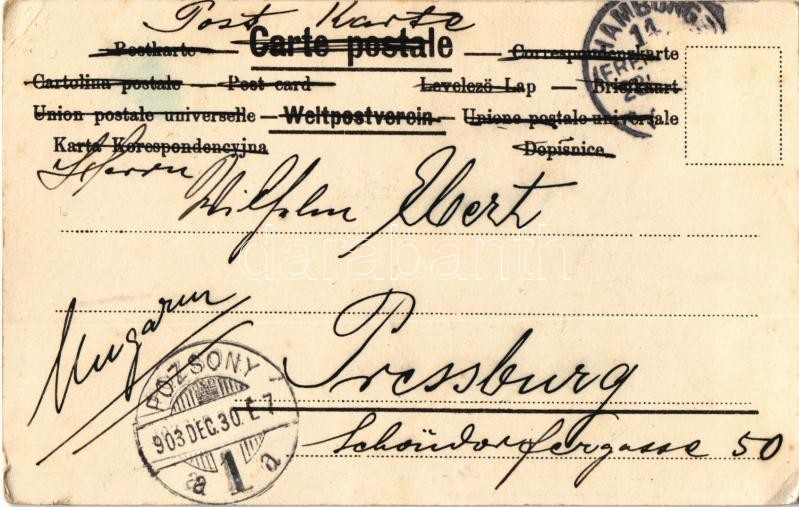 Post Karte
Postkarte — Carte postale — Correspondenzkarte
Cartolina postale — Post card — Levelező Lap — Briefkaart
Union postale universelle — Weltpostverein — Unione postale universale
Karta Korespondencyjna Dopisnice
HAMBURG
Herrn
Wilhelm Ebert
darabanth
Ungarn
Pressburg
POZSONY 1
903 DEC. 30. E 7
a 1 a
Schöndorfergasse 50